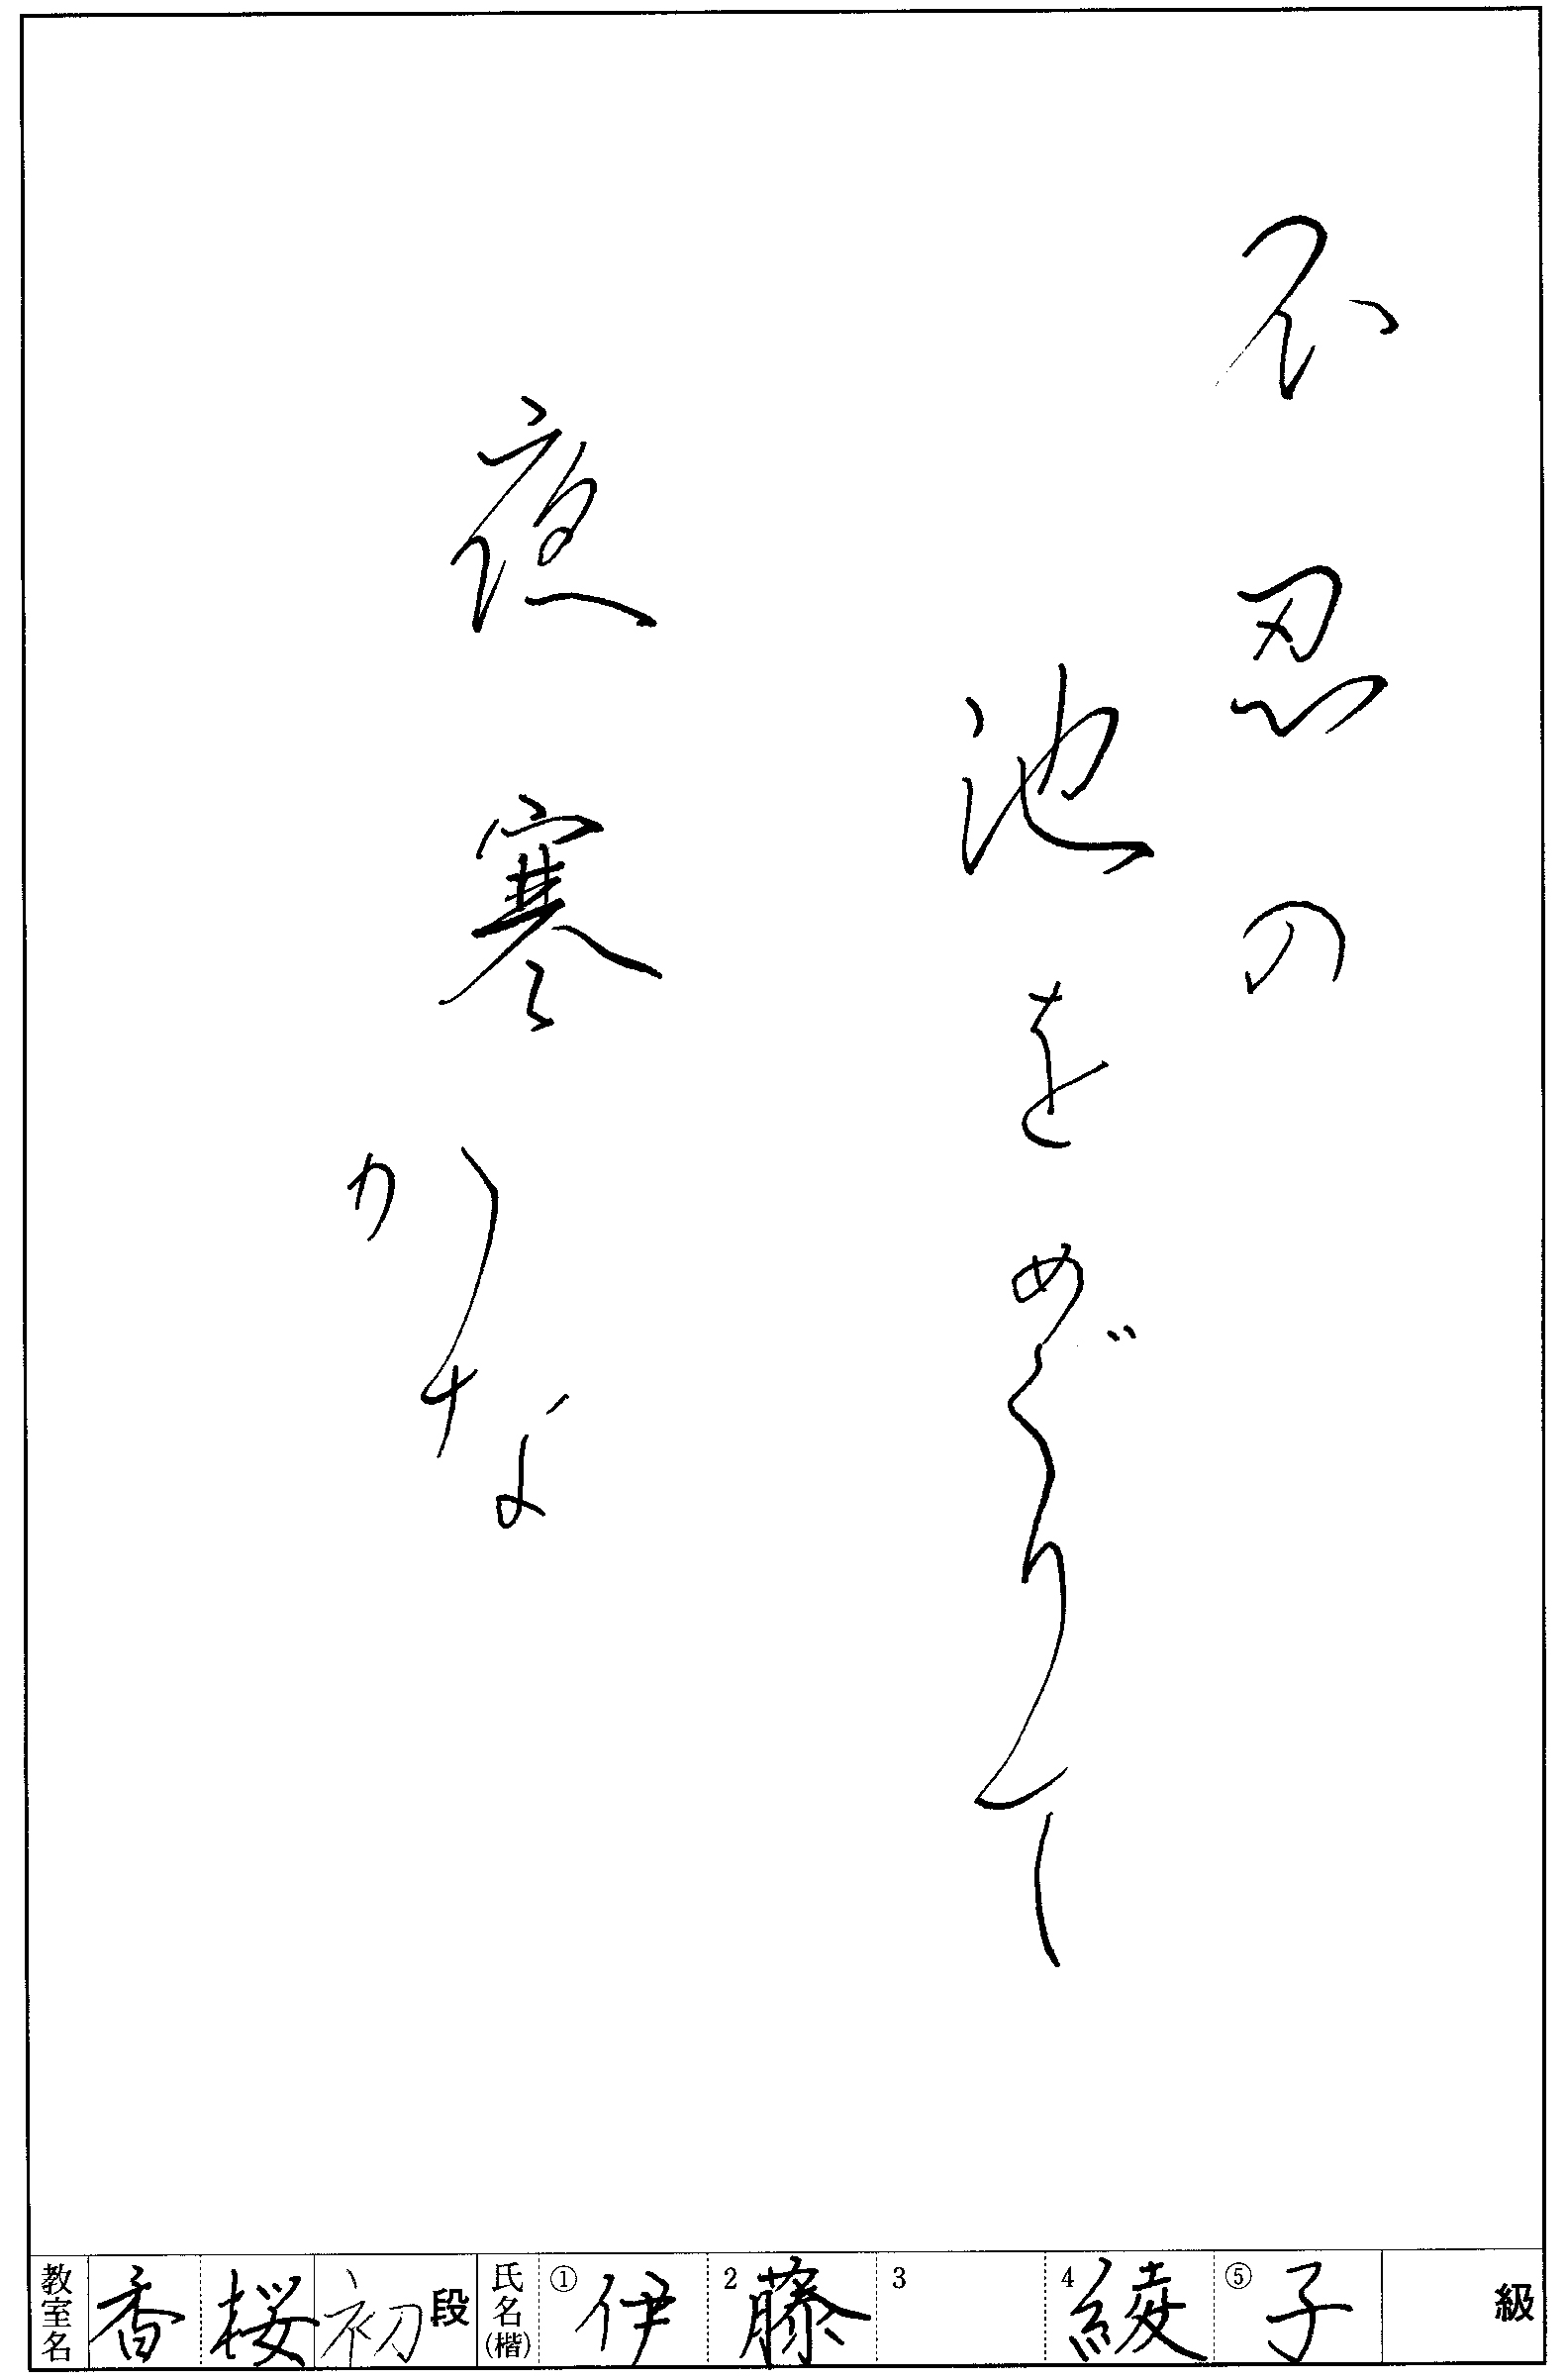 不忍の
池をめぐりて
夜寒かな
教室名 香桜 初段 氏名(楷) ① 伊 2 藤 3 4 綾 ⑤ 子 級